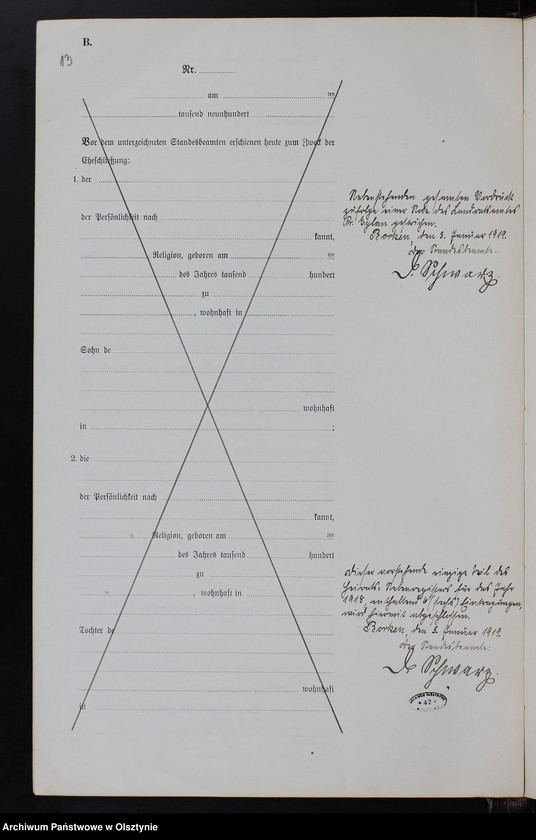 B.
13
Nr.
am ten
tausend neunhundert
Vor dem unterzeichneten Standesbeamten erschienen heute zum Zweck der
Eheschließung:
1. der
der Persönlichkeit nach
kannt,
Religion, geboren am ten
des Jahres tausend hundert
zu
, wohnhaft in
Sohn de
wohnhaft
in ;
2. die
der Persönlichkeit nach
kannt,
Religion, geboren am ten
des Jahres tausend hundert
zu
, wohnhaft in
Tochter de
wohnhaft
in
Nebenstehenden gesamten Vordruck
zufolge einer des Landratsamtes
Pr. Eylau gestrichen.
Borken, den 3. Januar 1919.
Der Standesbeamte.
Schwarz
Dieser vorstehende einzige Teil des
Heirats-Nebenregisters für das Jahr
1918, enthaltend 6 (sechs) Eintragungen,
wird hiermit abgeschlossen.
Borken, den 3. Januar 1919.
Der Standesbeamte:
Schwarz
* 42 *
Archiwum Państwowe w Olsztynie